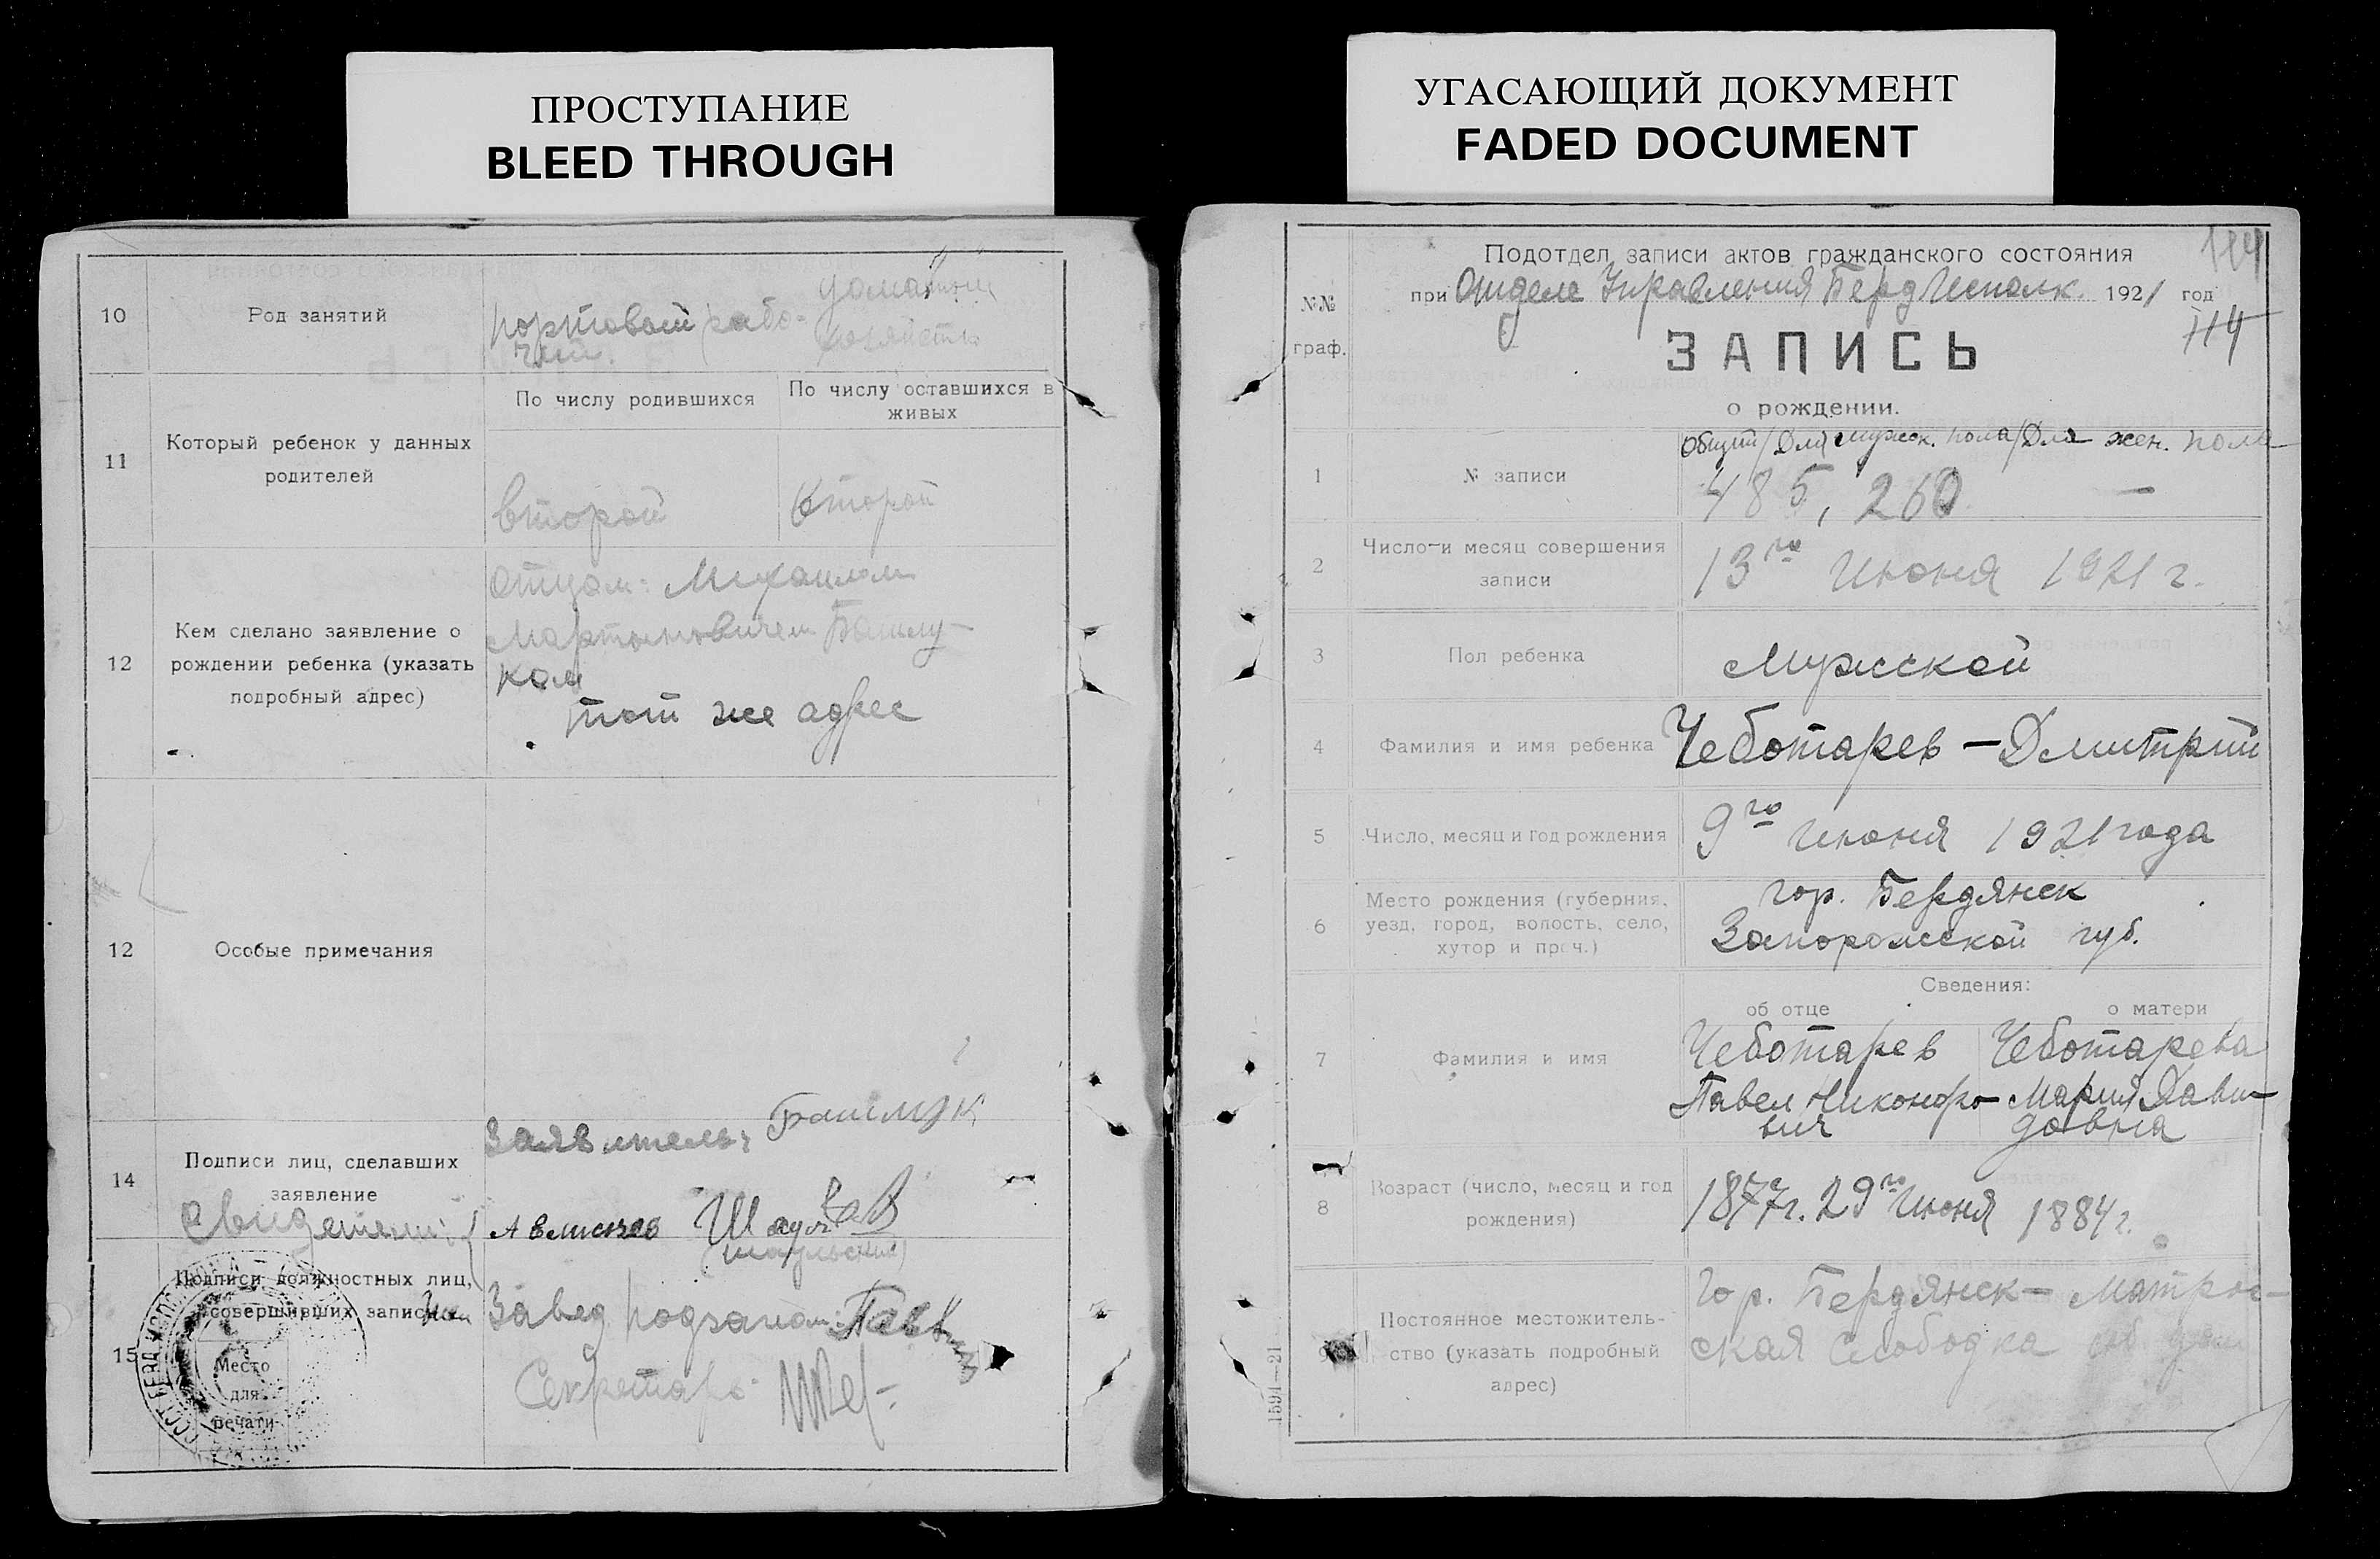 ПРОСТУПАНИЕ
BLEED THROUGH
10
Род занятий
портовый рабо-
чий.
домашн
хозяйство
11
Который ребенок у данных
родителей
По числу родившихся
По числу оставшихся в
живых
второй
второй
12
Кем сделано заявление о
рождении ребенка (указать
подробный адрес)
отцом: Михаилом
Мартыновичем Башлу-
ком
тот же адрес
12
Особые примечания
14
Подписи лиц, сделавших
заявление
свидетели:
Заявитель: Башлук
15
Подписи должностных лиц,
совершивших запись
Место
для
печати
Завед. подзагсом:
Секретарь:
УГАСАЮЩИЙ ДОКУМЕНТ
FADED DOCUMENT
№№
граф.
Подотдел записи актов гражданского состояния
при Отделе Управления Берд Исполк. 1921 год
114
ЗАПИСЬ
о рождении.
Общий/Для мужск. пола/Для жен. пола
1
№ записи
485, 260 —
2
Число и месяц совершения
записи
13го Июня 1921 г.
3
Пол ребенка
Мужской
4
Фамилия и имя ребенка
Чеботарев — Дмитрий
5
Число, месяц и год рождения
9го Июня 1921 года
6
Место рождения (губерния,
уезд, город, волость, село,
хутор и проч.)
гор. Бердянск
Запорожской губ.
Сведения:
об отце
о матери
7
Фамилия и имя
Чеботарев
Павел Никоноро-
вич
Чеботарева
Мария Дави-
довна
8
Возраст (число, месяц и год
рождения)
1877г. 29го Июня
1884г.
9
Постоянное местожитель-
ство (указать подробный
адрес)
Гор. Бердянск — Матрос-
ская Слободка
1591—21